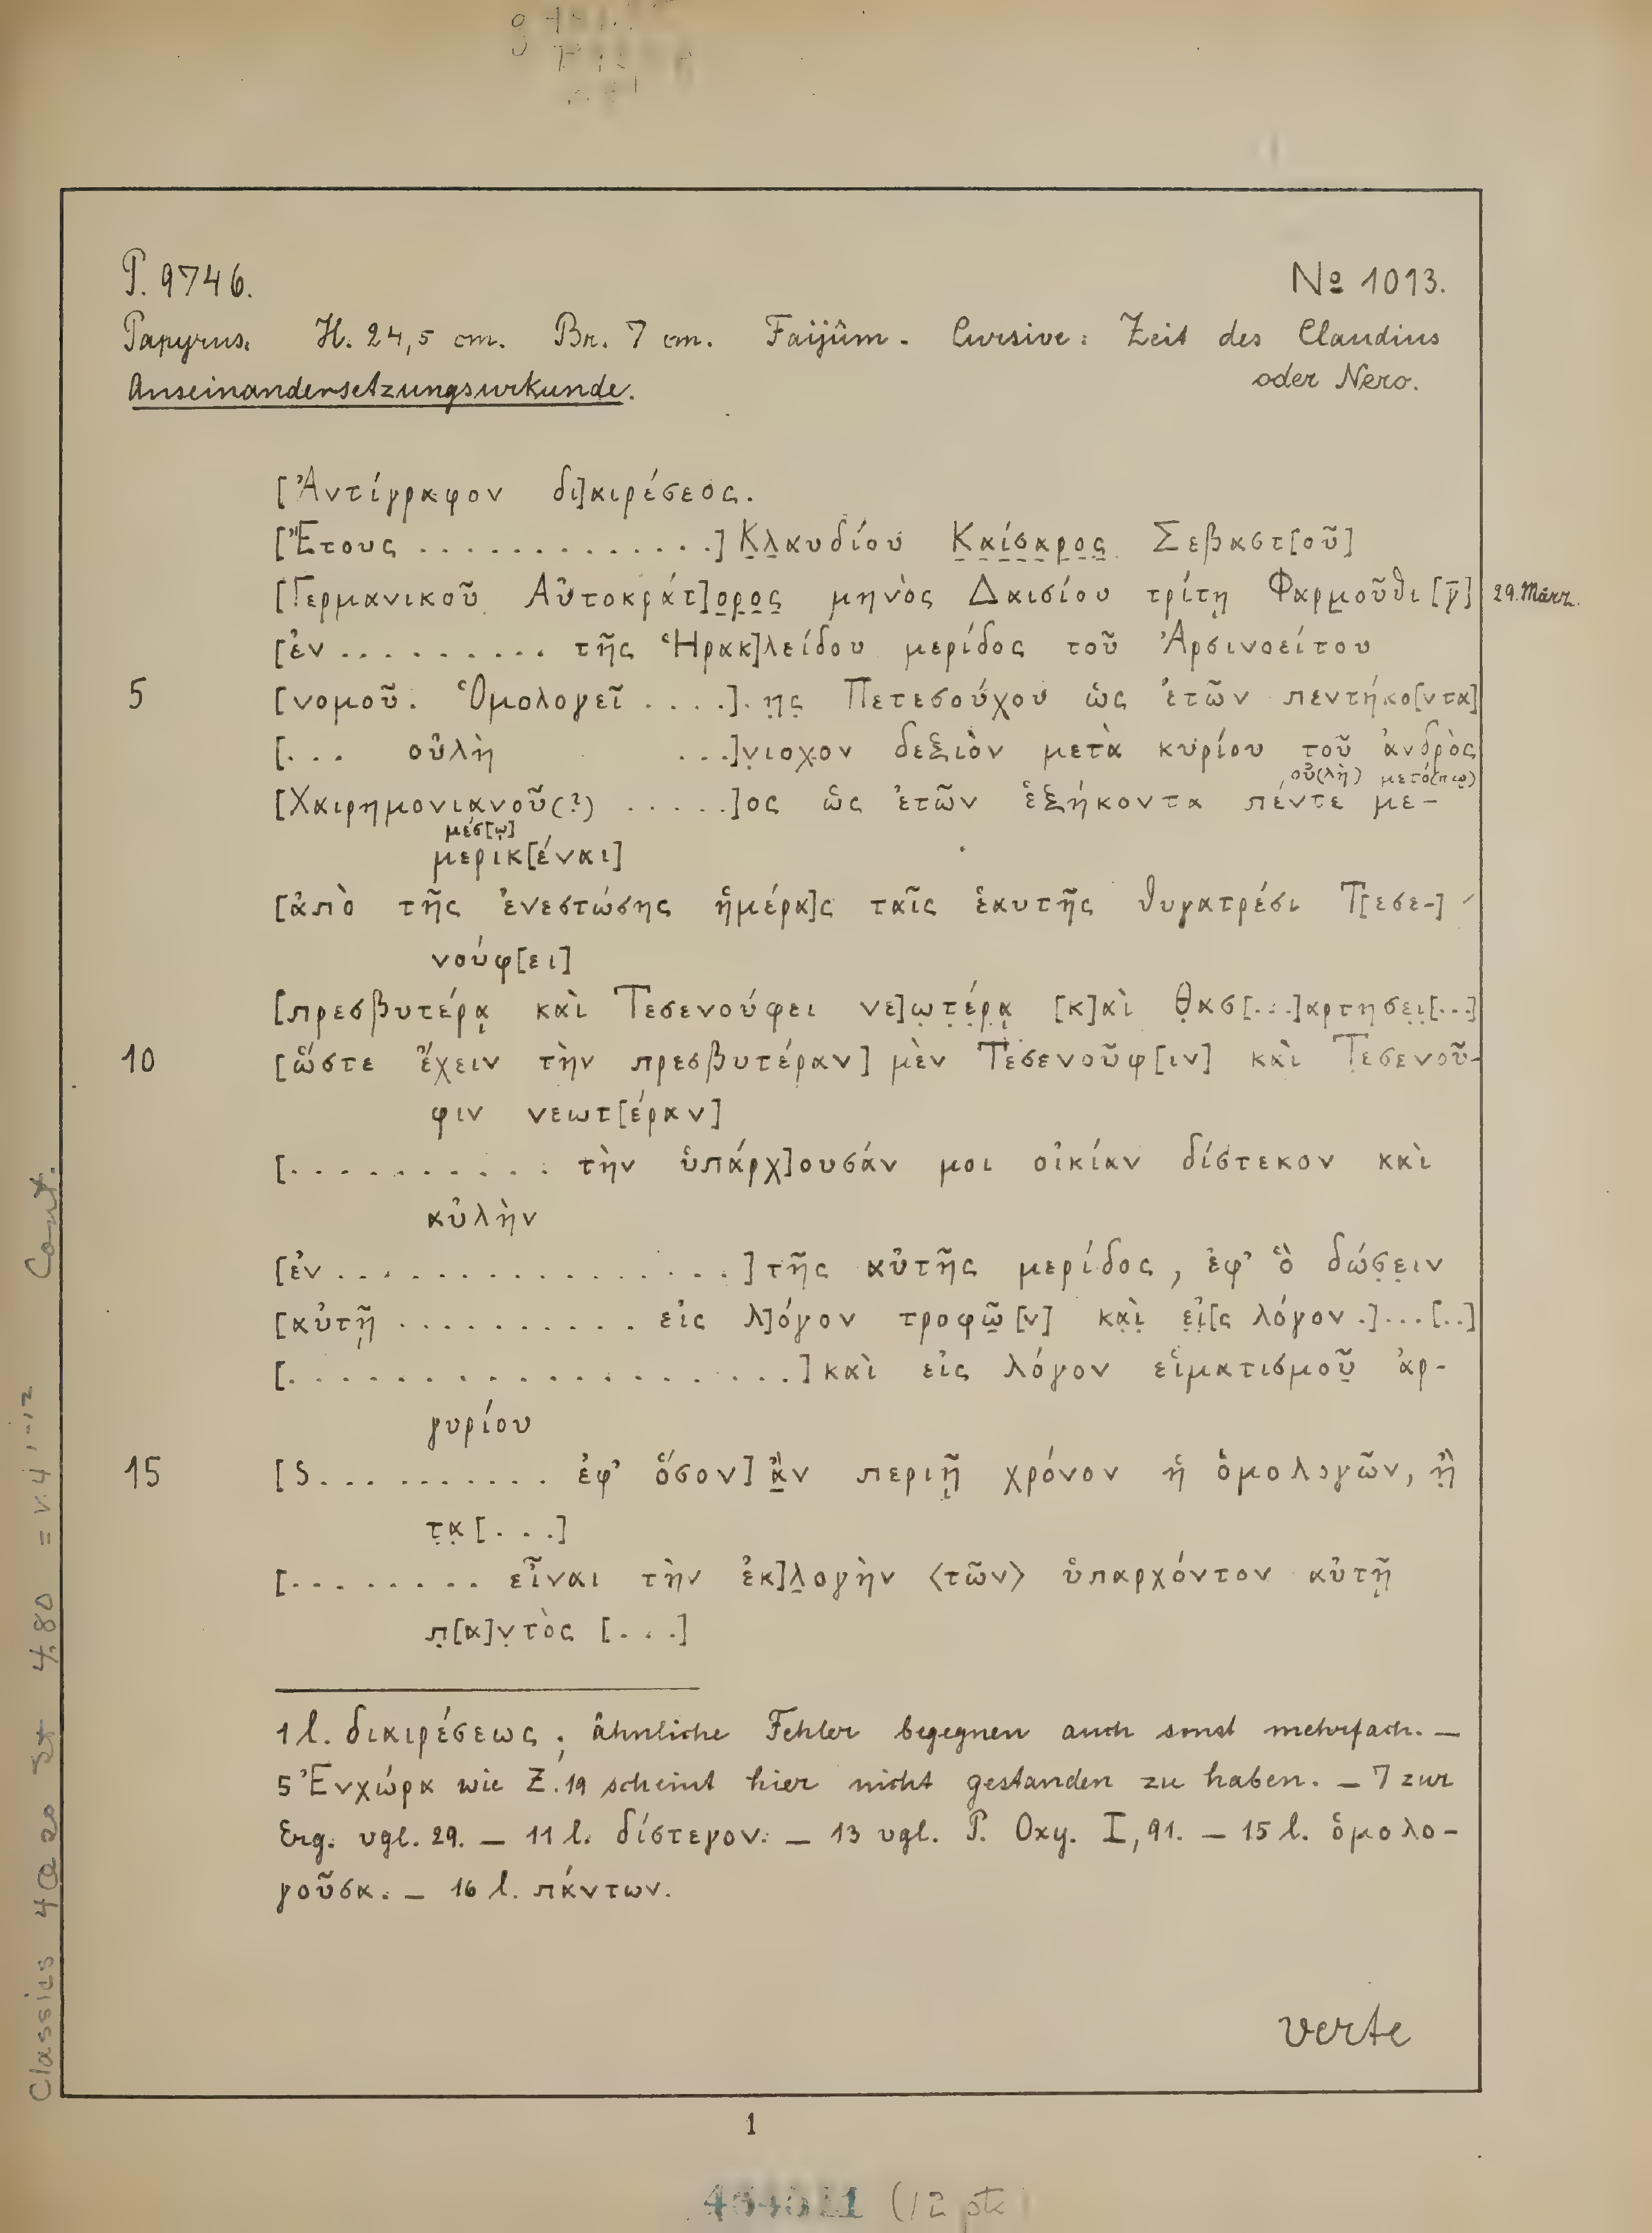 P. 9746.
№ 1013.
Papyrus. H. 24,5 cm. Br. 7 cm. Faijûm. Cursive: Zeit des Claudius
oder Nero.
Auseinandersetzungsurkunde.
[Ἀντίγραφον δι]αιρέσεος.
[Ἔτους .............] Κ̣λ̣αυδίου Κ̣α̣ί̣σ̣α̣ρ̣ο̣ς̣ Σεβαστ[οῦ]
[Γερμανικοῦ Αὐτοκράτ]ο̣ρ̣ο̣ς̣ μηνὸς Δαισίου τρίτῃ Φαρμοῦθι [γ̅] 29. März.
[ἐν .......... τῆς Ἡρακ]λείδου μερίδος τοῦ Ἀρσινοείτου
5 [νομοῦ. Ὁμολογεῖ ....].η̣ς̣ Πετεσούχου ὡς ἐτῶν πεντήκο[ντα]
[... οὐλὴ ...]ν̣ιοχον δεξιὸν μετὰ κυρίου τοῦ ἀνδρὸς
οὐ(λὴ) μετό(πῳ)
[Χαιρημονιανοῦ(?) .....]ος ὡς ἐτῶν ἑξήκοντα πέντε με-
μέσ[ῳ]
μερικ[έναι]
[ἀπὸ τῆς ἐνεστώσης ἡμέρα]ς ταῖς ἑαυτῆς θυγατρέσι Τ[εσε-]
νούφ[ει]
[πρεσβυτέρᾳ καὶ Τεσενούφει νε]ω̣τ̣έ̣ρ̣ᾳ [κ]αὶ Θ̣ασ[...]αρτησε̣ι̣[...]
10 [ὥστε ἔχειν τὴν πρεσβυτέραν] μὲν Τεσενοῦφ[ιν] καὶ Τεσενοῦ-
φιν νεωτ[έραν]
[........... τὴν ὑπάρχ]ουσάν μοι οἰκίαν δίστεκον καὶ
αὐλὴν
[ἐν .................] τῆς αὐτῆς μερίδος, ἐφ' ὃ δώσ̣ε̣ιν
[αὐτῇ .......... εἰς λ]όγον τροφῶ̣[ν] κα̣ὶ̣ ε̣ἰ̣[ς λόγον .]...[..]
[......................] καὶ εἰς λόγον εἱματισμοῦ̣ ἀρ-
γυρίου
15 [S.......... ἐφ' ὅσον] ἂ̣ν περιῇ χρόνον ἡ ὁμολογῶν, ἢ̣
τ̣α̣[...]
[......... εἶναι τὴν ἐκ]λ̣ογὴν ⟨τῶν⟩ ὑπαρχόντον αὐτῇ
π̣[α]ν̣τὸς [...]
1 l. διαιρέσεως; ähnliche Fehler begegnen auch sonst mehrfach. —
5 Ἐνχώρα wie Z. 19 scheint hier nicht gestanden zu haben. — 7 zur
Erg. vgl. 29. — 11 l. δίστεγον. — 13 vgl. P. Oxy. I, 91. — 15 l. ὁμολο-
γοῦσα. — 16 l. πάντων.
verte
1
(12 pts
Classics 4@20 St 4.80 = v.4, 1-12 Cont.